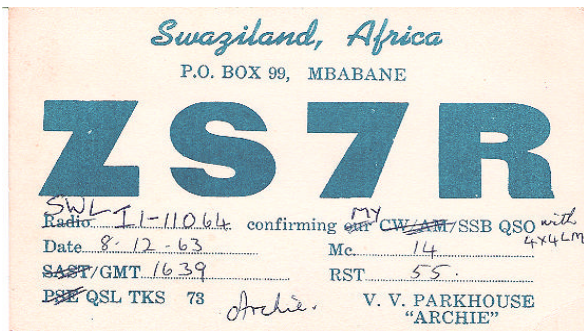 Swaziland, Africa
P.O. BOX 99, MBABANE
ZS7R
SWL Radio I1-11064 confirming our MY CW/AM/SSB QSO with 4X4LM
Date 8-12-63 Mc. 14
SAST/GMT 1639 RST 55.
PSE QSL TKS 73 Archie. V. V. PARKHOUSE
"ARCHIE"